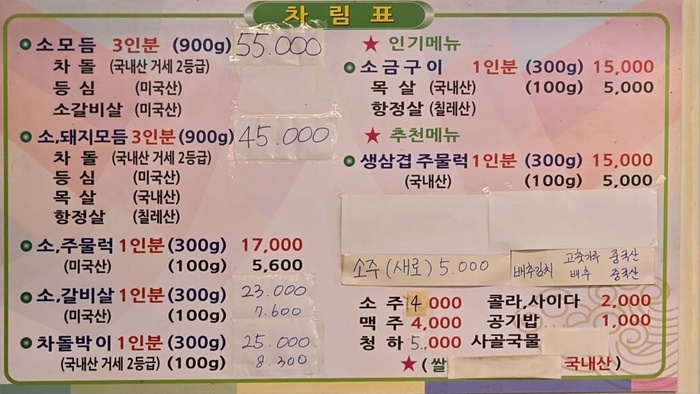 차림표
소모듬 3인분 (900g) 55.000
차돌 (국내산 거세 2등급)
등심 (미국산)
소갈비살 (미국산)
소,돼지모듬 3인분 (900g) 45.000
차돌 (국내산 거세 2등급)
등심 (미국산)
목살 (국내산)
항정살 (칠레산)
소,주물럭 1인분 (300g) 17,000
(미국산) (100g) 5,600
소,갈비살 1인분 (300g) 23.000
(미국산) (100g) 7.600
차돌박이 1인분 (300g) 25.000
(국내산 거세 2등급) (100g) 8.300
★ 인기메뉴
소금구이 1인분 (300g) 15,000
목살 (국내산) (100g) 5,000
항정살 (칠레산)
★ 추천메뉴
생삼겹 주물럭 1인분 (300g) 15,000
(국내산) (100g) 5,000
소주 (새로) 5.000
배추김치 고춧가루 중국산
배추 중국산
소주 4,000 콜라,사이다 2,000
맥주 4,000 공기밥... 1,000
청하 5,000 사골국물
★(쌀 국내산)